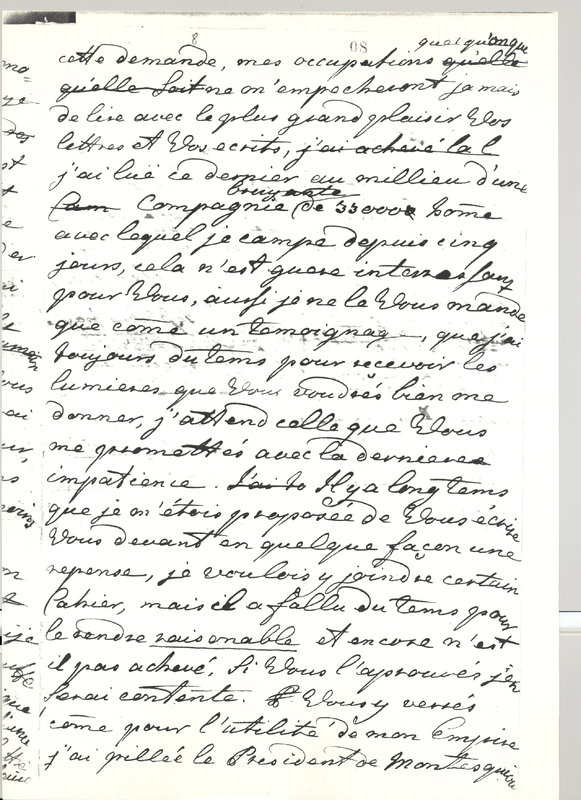 8
08
quelqu'onque
cette demande, mes occupations qu'elle
qu'elle soit ne m'empecheront jamais
de lire avec le plus grand plaisir Vos
lettres et Vos ecrits, j'ai achevé la l
j'ai lué ce dernier au millieu d'une
bruyante
Cam Compagnie de 33000 home
avec lequel je campe depuis cinq
jours, cela n'est guere interressant
pour Vous, aussi je ne le Vous mande
que come un temoignage, que j'ai
toujours du tems pour recevoir les
lumieres que Vous voudrés bien me
donner, j'attend celle que Vous
me promettés avec la derniere
impatience. J'ai to Il y a longtems
que je m'étois proposée de Vous écrire
Vous devant en quelque façon une
reponse, je voulois y joindre certain
Cahier, mais il a fallu du tems pour
le rendre raisonable et encore n'est
il pas achevé. Si Vous l'aprouvés j'en
serai contente. Vous y verrés
come pour l'utilité de mon Empire
j'ai pillée le President de Montesquieu